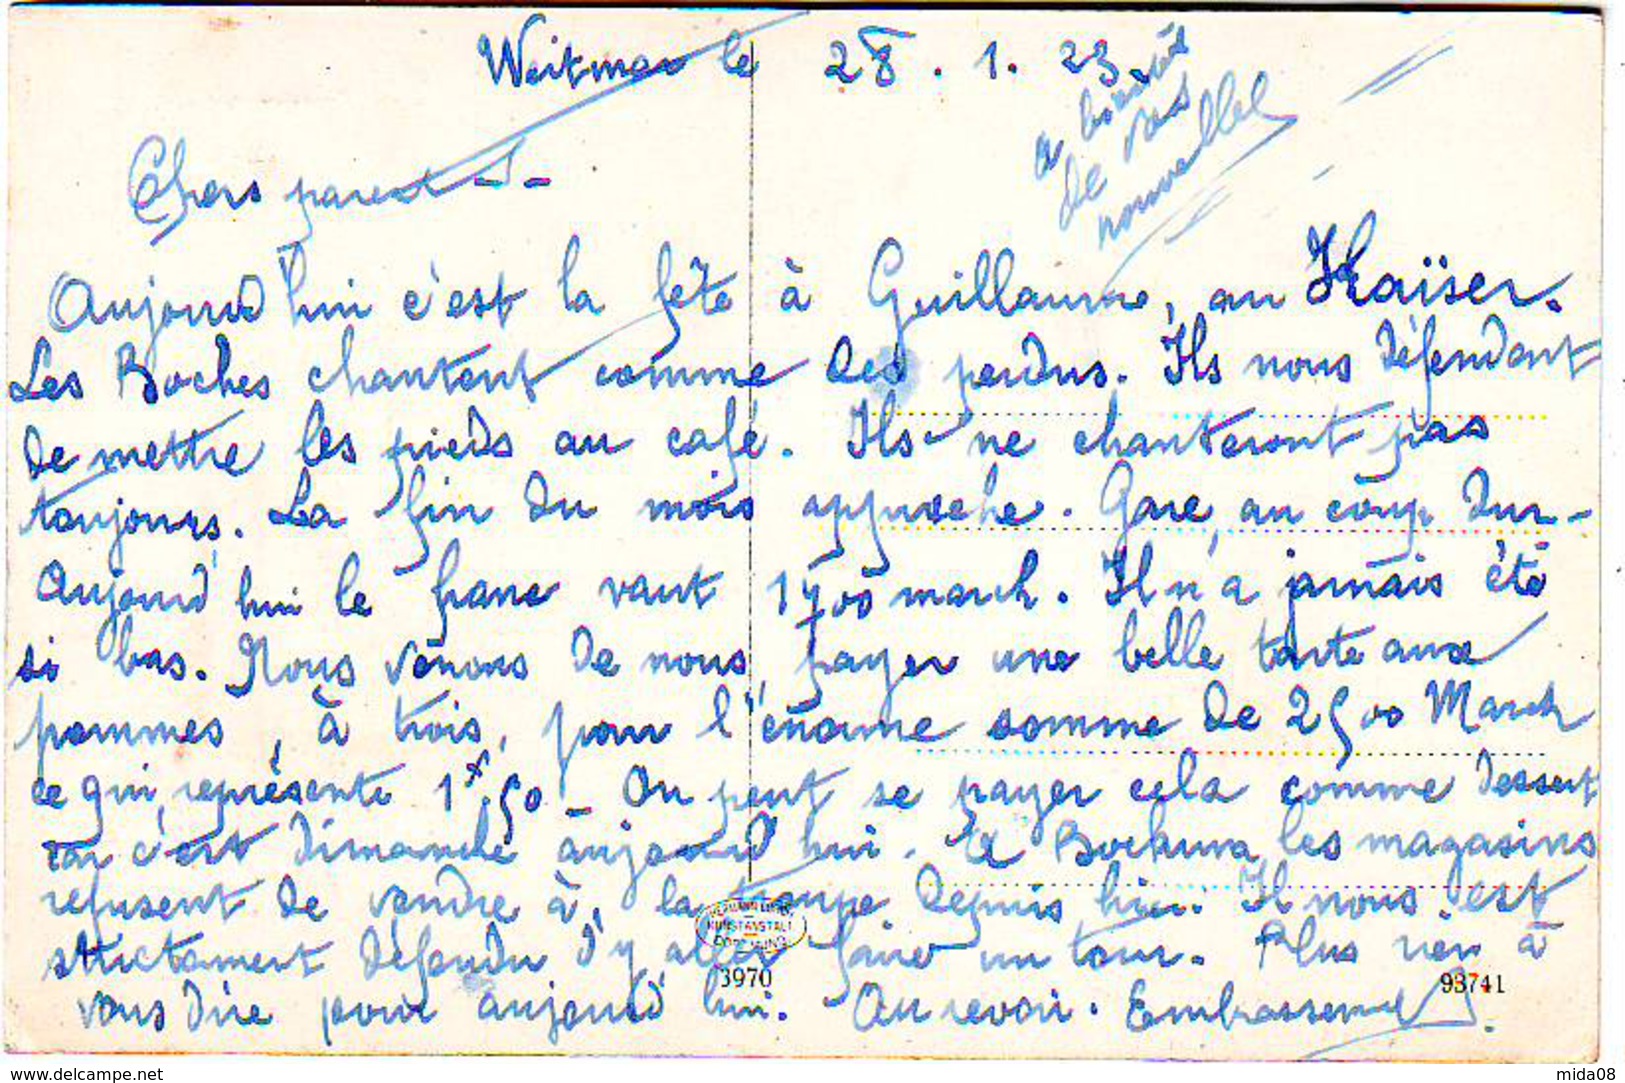 Weitmar le 28.1.23
a bientôt
de vos
nouvelles
Chers parents -
Aujourd'hui c'est la fête à Guillaume, au Kaïser.
Les Boches chantent comme des perdus. Ils nous défendent
de mettre les pieds au café. Ils ne chanteront pas
toujours. La fin du mois approche. Gare, au coup dur -
Aujourd'hui le franc vaut 1700 march. Il n'a jamais été
si bas. Nous venons de nous payer une belle tarte aux
pommes, à trois, pour l'énorme somme de 2500 March
ce qui représente 1f,50 - On peut se payer cela comme dessert
car c'est dimanche aujourd'hui. A Bochum les magasins
refusent de vendre à la troupe depuis hier. Il nous est
strictement défendu d'y aller faire un tour. Plus rien à
vous dire pour aujourd'hui. Au revoir. Embrassement.
KUNSTANSTALT
3970
93741
delcampe.net
mida08